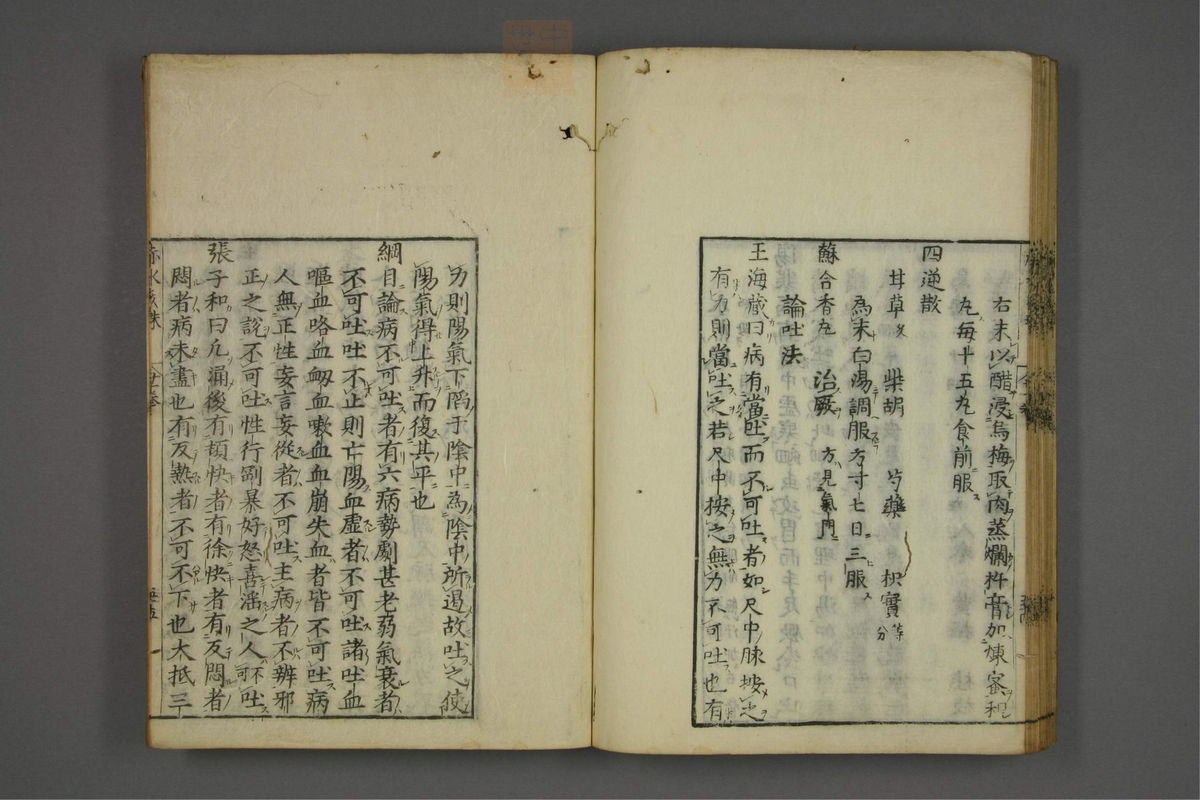 右末以醋浸烏梅取肉蒸爛杵膏加煉蜜和
丸每十五丸食前服
四逆散
甘草炙　柴胡　芍藥　枳實等分
為末白湯調服方寸匕日三服
蘇合香丸　治厥　方見氣門
論吐法
王海藏曰病有當吐而不可吐者如尺中脉按之
有力則當吐之若尺中按之無力不可吐也有
力則陽氣下陷于陰中為陰中所遏故吐之使
陽氣得上升而復其平也
綱目論病不可吐者有六病勢劇甚老弱氣衰者
不可吐吐不止則亡陽血虛者不可吐諸吐血
嘔血咯血衂血嗽血血崩失血者皆不可吐病
人無正性妄言妄從者不可吐主病者不辨邪
正之說不可吐性行剛暴好怒喜淫之人不可吐
張子和曰凡漏後有頓快者有徐快者有反悶者
悶者病未盡也有反熱者不可不下也大抵三
赤水玄珠